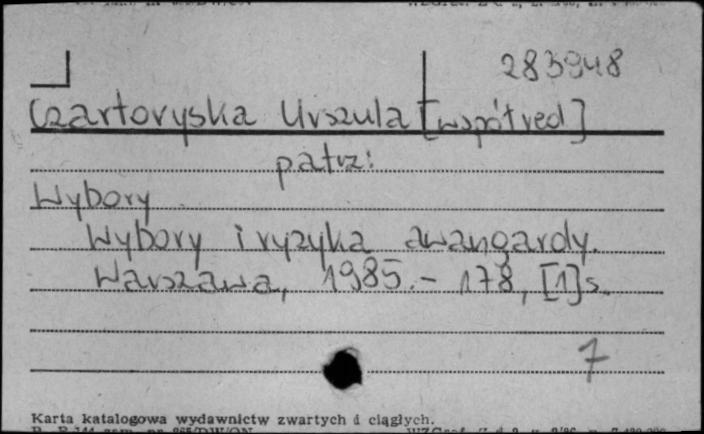 283948
Czartoryska Urszula [współred]
patrz:
Wybory
Wybory i ryzyka awangardy.
Warszawa, 1985.- 178, [1]s.
7
Karta katalogowa wydawnictw zwartych i ciągłych.